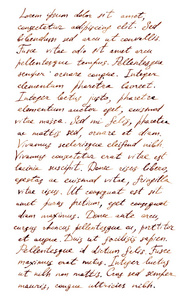 Lorem ipsum dolor sit amet
consectetur adipiscing elit. Sed
bibendum sed arcu at convallis.
Fusce vitae odio sit amet arcu
pellentesque tempus. Pellentesque
semper ornare congue. Integer
elementum pharetra laoreet.
Integer lectus justo, pharetra
elementum auctor eget, euismod
vitae massa. Sed mi felis, pharetra
ac mattis sed, ornare et diam.
Vivamus scelerisque eleifend nibh.
Vivamus consectetur erat vitae est
lacinia suscipit. Donec risus libero,
egestas ac euismod vitae, fringilla
vitae risus. Ut consequat est sit
amet purus pretium, eget consequat
diam maximus. Donec ante arcu,
cursus rhoncus pellentesque ac, porttitor
et augue. Duis et facilisis sapien.
Pellentesque id dictum felis. Fusce
maximus erat metus. Integer luctus
at nibh non mattis. Cras sed semper
mauris, congue ultricies nibh.